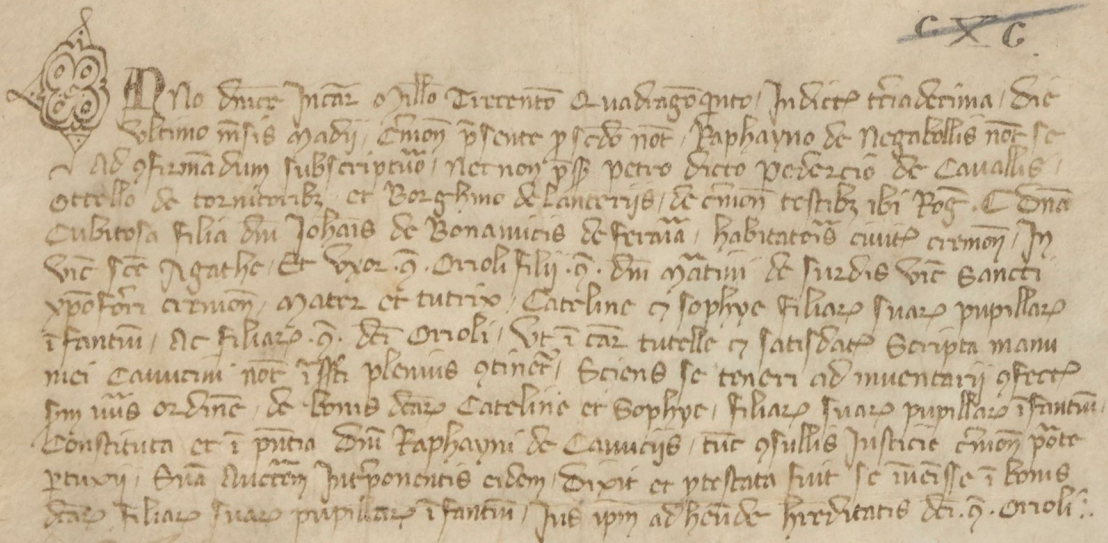 C X C
Anno dnice Incar Millo Trecento Quadrago quinto, Indict tciadecima, die
ultimo msis Madij, Cremon psente p sedo not, Raphayno de Negabollis not se
Ad 9firmadum subscriptuo, Necnon psse petro dicto pedercio de Cavallis,
Ottello de tornitoribz et Borghino de lanceriis, de cremon testibz ibi Rog. C Dna
Cubitosa filia dni Johais de Bonamicis de feraia, habitatoris civit cremon, In
vic sce Agathe, Et Uxor q. Orioli filij q. dni Matini de surdis vic Sancti
xpofori cremon, mater et tutrix, Cateline et sophye filiar suar pupillar
ifantiu, Ac filiar q. dci Orioli, ut i car tutelle et satisdat Scripta manu
mei Cavucini not ifsti plenius 9tinet, Sciens se teneri ad inventarij 9fect
sm iuris ordine, de bonis dcar Cateline et Sophye, filiar suar pupillar ifantiu,
Constituta et i pntia Dni Raphayni de Cavuciis, tuc 9sullis Justicie cremon porte
ptuxij, Sua Auctem Interponentis eidem, Dixit et ptestata fuit se iveisse i bonis
dcar filiar suar pupillar ifantiu, Jus ipm adheude hereditatis dci q. Orioli